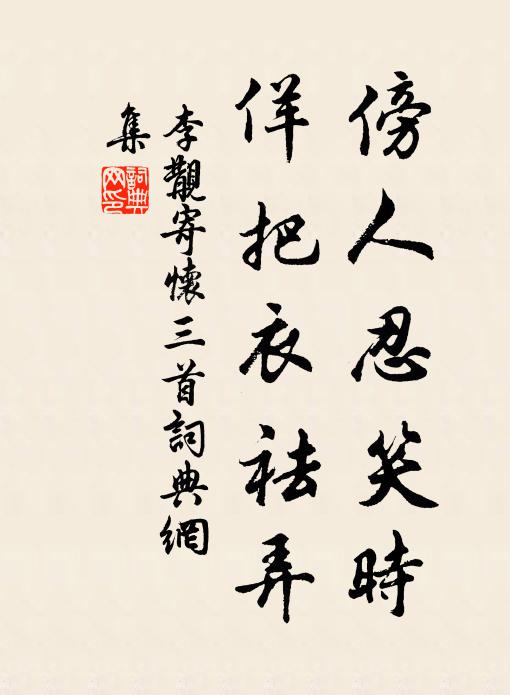 傍人忍笑時
佯把衣袪弄
李觀寄懷三首詞典網
集
詞典
网印